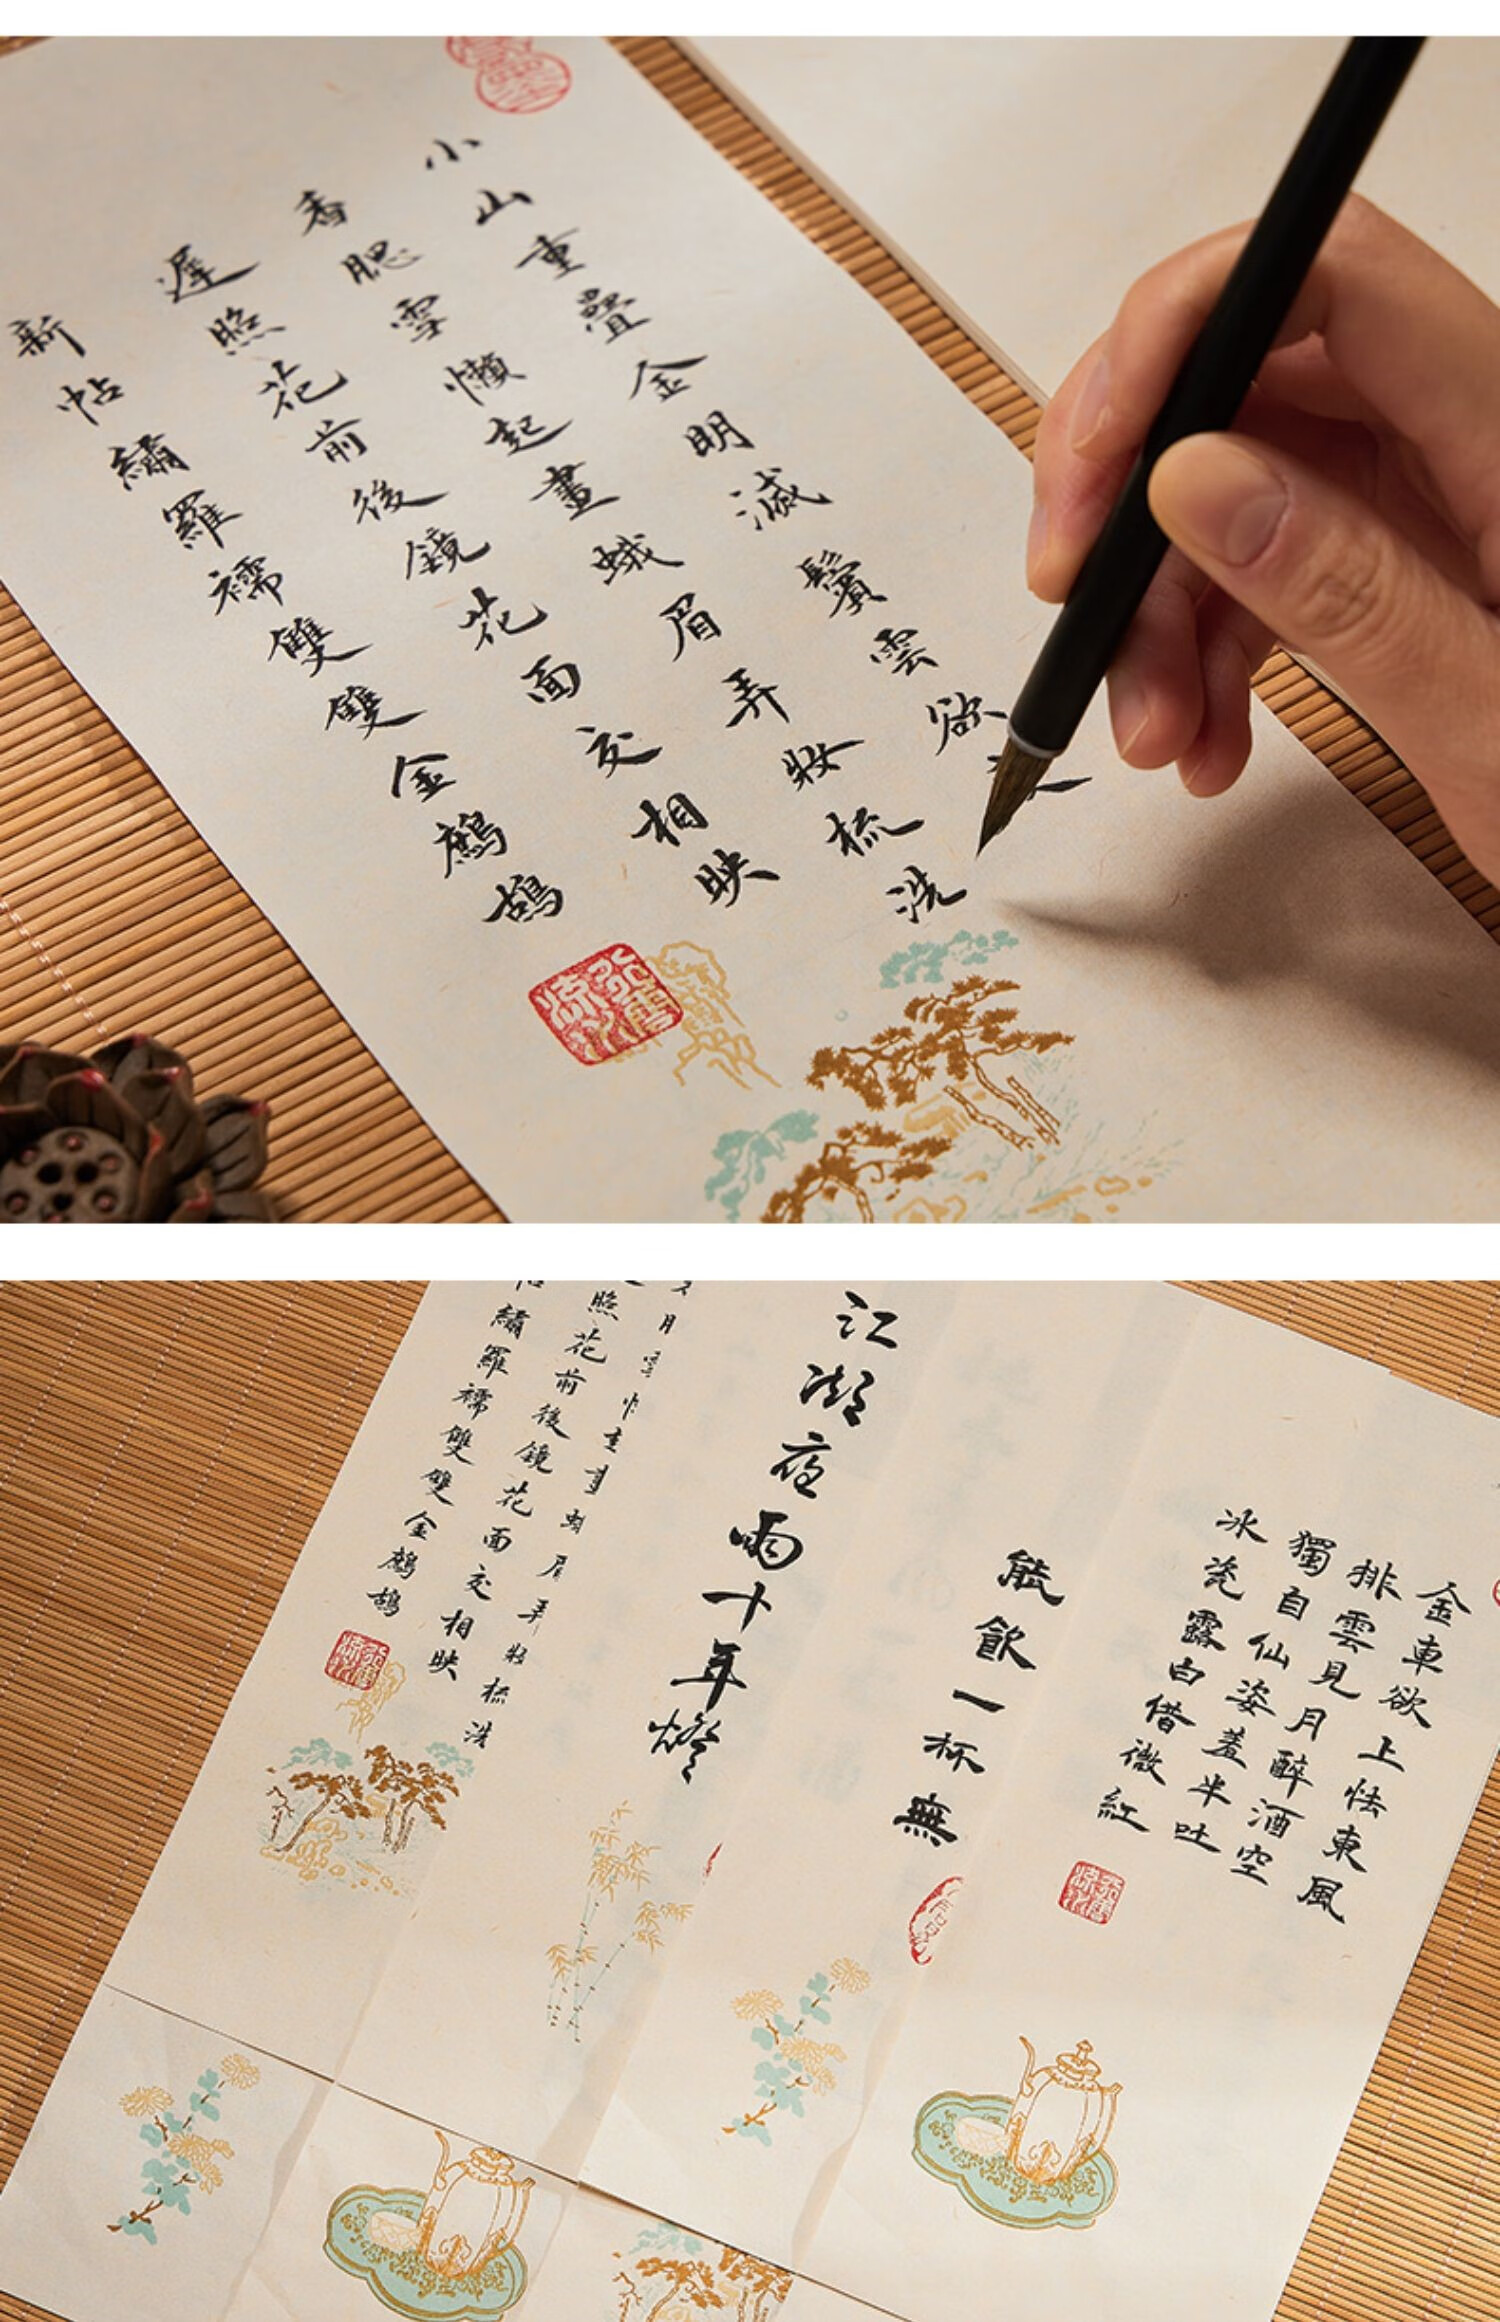 小山重疊金明滅鬢雲欲
香腮雪懶起畫蛾眉弄妝梳洗
遲照花前後鏡花面交相映
新帖繡羅襦雙雙金鷓鴣
金車欲上怯東風
排雲見月醉酒空
獨自仙姿羞半吐
冰瓷露白借微紅
能飲一杯無
江湖夜雨十年燈
眉弄妝梳洗
照花前後鏡花面交相映
繡羅襦雙雙金鷓鴣